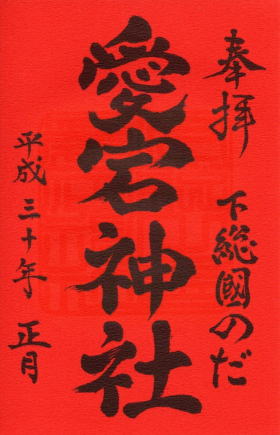 奉拝
下総國のだ
愛宕神社
平成三十年 正月